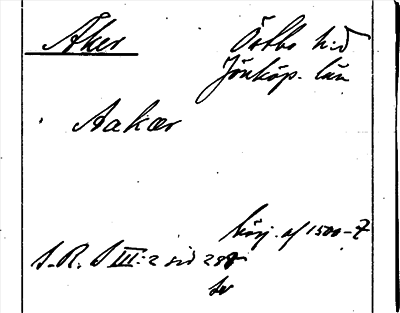 Åker
Östbo hd
Jönköp. län
Aakær
börj. af 1500-t
S. R. S III:2 sid
sv